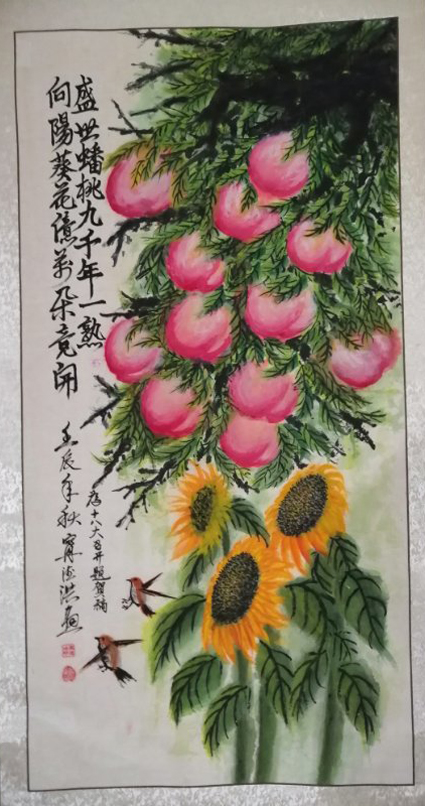 盛世蟠桃九千年一熟
向陽葵花億萬朵竟開
壬辰年秋寧德洪
為十八大召开题賀